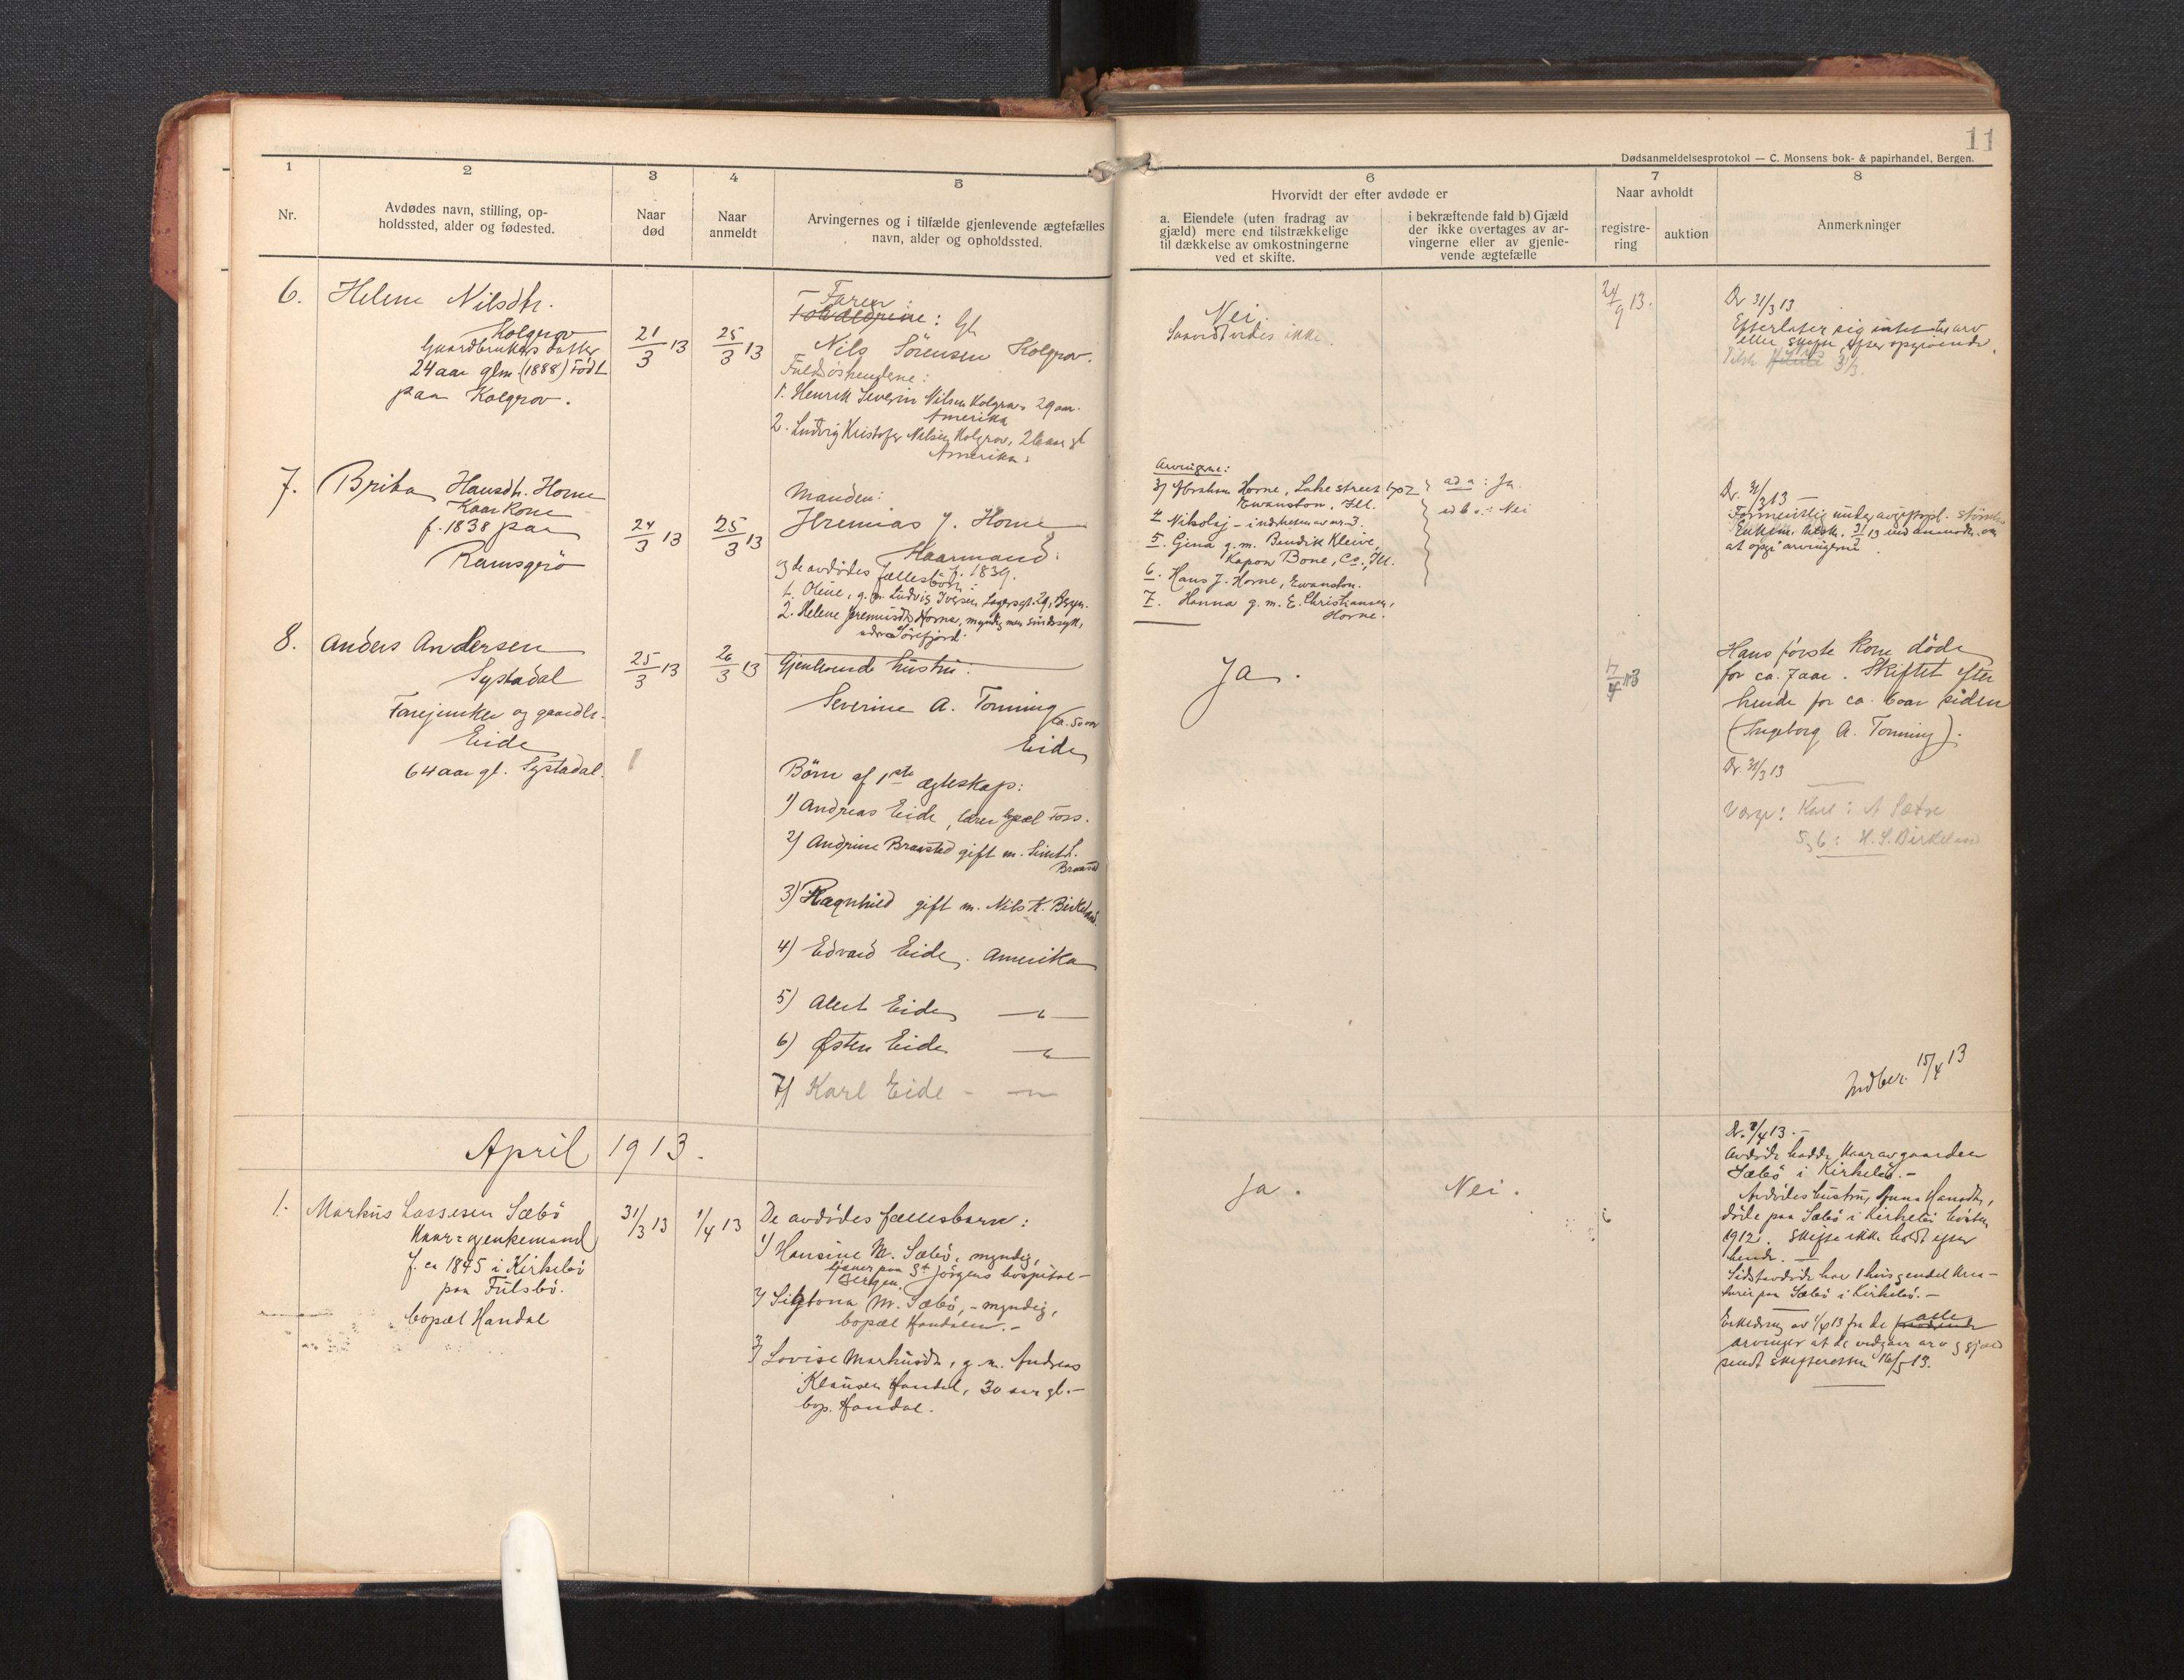 11
Dødsanmeldelsesprotokol — C. Monsens bok- & papirhandel, Bergen.
1
2
3
4
5
6
7
8
Nr.
Avdødes navn, stilling, op-
holdssted, alder og fødested.
Naar
død
Naar
anmeldt
Arvingernes og i tilfælde gjenlevende ægtefælles
navn, alder og opholdssted.
Hvorvidt der efter avdøde er
a. Eiendele (uten fradrag av
gjæld) mere end tilstrækkelige
til dækkelse av omkostningerne
ved et skifte.
i bekræftende fald b) Gjæld
der ikke overtages av ar-
vingerne eller av gjenle-
vende ægtefælle
Naar avholdt
registre-
ring
auktion
Anmerkninger
6.
Helene Nilsdtr.
Kolgrov
Gaardbrukers datter
24 aar glm (1888) Født
paa Kolgrov.
21/3 13
25/3 13
Faren:
Nils Sörensen Kolgrov.
Fuldsöskendene:
1. Henrik Severin Nilsen Kolgrov 29 aar.
Amerika
2. Ludvig Kristofer Nilsen Kolgrov, 26 aar gl
Amerika.
Nei.
Saavidt vides ikke.
24/9 13.
Dr 31/3 13
Efterlater sig intet til arv
eller skifte efter opgivende.
7.
Brita Hansdtr. Horne
Kaarkone
f. 1838 paa
Ramsgrö
24/3 13
25/3 13
Manden:
Jeremias J. Horne
Kaarmand.
f. 1839.
og de avdödes fællesbörn:
1. Oline, g. m. Ludvig Iversen, Bergen.
2. Helene Jeremiasdtr Horne, myndig men sindssyk,
Arvingerne:
3) Abraham Horne, Lake street 1702
Ewanston, Ill.
4 Nikolaj – i nærheten av nr. 3.
5. Gina g. m. Bendik Kleive,
Kapon Bone, Co., Ill.
6. Hans J. Horne, Ewanston.
7. Hanna g. m. E. Christiansen,
Horne.
ad a: Ja.
ad b.: Nei
Dr. 31/3 13 –
at opgi arvingerne.
8.
Anders Andersen
Systadal
gaardbr.
Eide
64 aar gl. Systadal.
25/3 13
26/3 13
Gjenlevende hustru:
Severine A. Tonning
ca. 50 aar
Eide
Börn af 1ste ægteskap:
1) Andreas Eide, lærer bopæl Foss.
2) Andrine Bransted gift m.
3) Ragnhild gift m. Nils K. Birkeland.
4) Edvard Eide, Amerika
5) Albert Eide —〃—
6) Østen Eide —〃—
7) Karl Eide – —〃—
Ja.
Hans förste kone döde
for ca. 7 aar. Skiftet efter
hende for ca. 6 aar siden
(Ingeborg A. Tonning).
Dr. 31/3 13
Værge: Karl: A Sætre
5, 6: H. S. Birkeland
Indber. 15/4 13
April 1913.
1.
Markus Lassesen Sæbö
Kaar- og enkemand
f. ca 1845 i Kirkebö
paa Fulsbö.
bopæl Handal
31/3 13
1/4 13
De avdödes fællesbarn:
1) Hansine M. Sæbö, myndig,
tjener paa St. Jörgens hospital –
Bergen.
2) Sigtona M. Sæbö, – myndig,
bopæl Handalen. –
3) Lovise Markusdtr, g. m. Andreas
Klausen Handal, 30 aar gl. –
bop. Handal.
Ja.
Nei.
Avdöde hadde kaar av gaarden
Sæbö i Kirkebö. –
Avdödes hustru, Anna Hansdtr,
döde paa Sæbö i Kirkebö hösten
1912. Skifte ikke holdt efter
hende. –
Sidstavdöde har 1 hus og endel
paa Sæbö i Kirkebö. –
Erklæring av 1/4 13 fra de
alle
arvinger at de vedgaar arv og gjæld
sendt skifteretten 16/5 13.